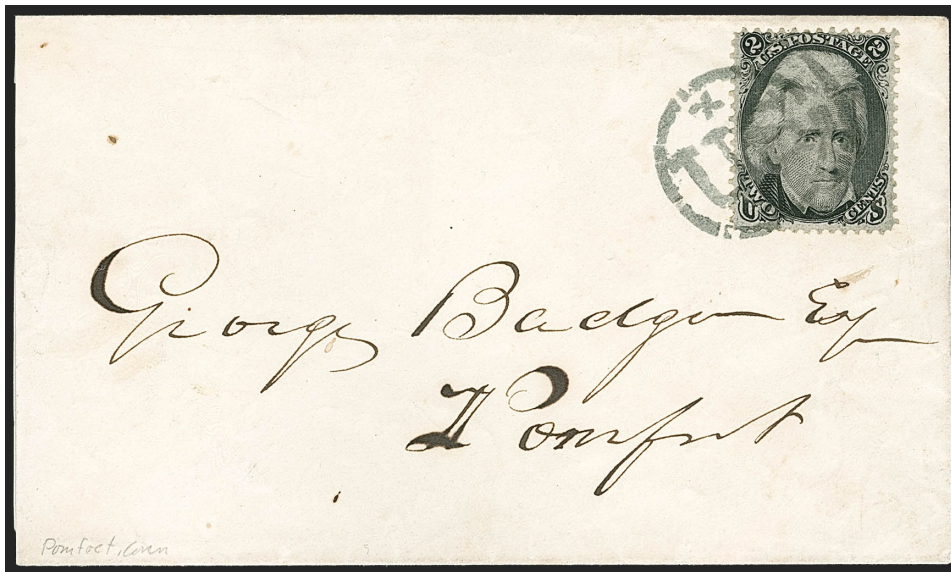 2 U.S. POSTAGE 2
TWO CENTS
U S
George Badger Esq
Pomfret
Pomfret, Conn